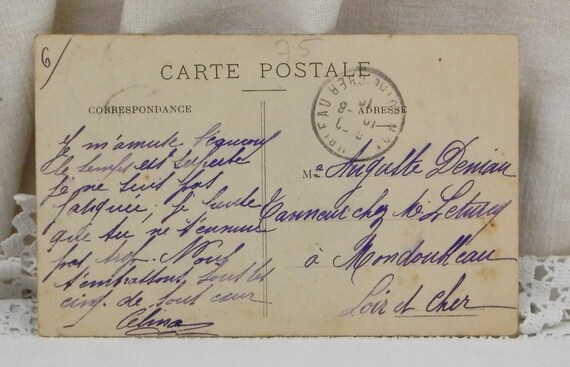 6
75
CARTE POSTALE
CORRESPONDANCE
ADRESSE
Je m'amuse
le temps est superbe
je ne suis pas
fatiguée, je
que tu ne t'ennuie
pas trop. Nous
t'embrassons tous les
cinq de tout cœur
Célina
Mr Auguste Deniau
Tanneur chez Mr Leturcq
à Mondoubleau
Loir et Cher